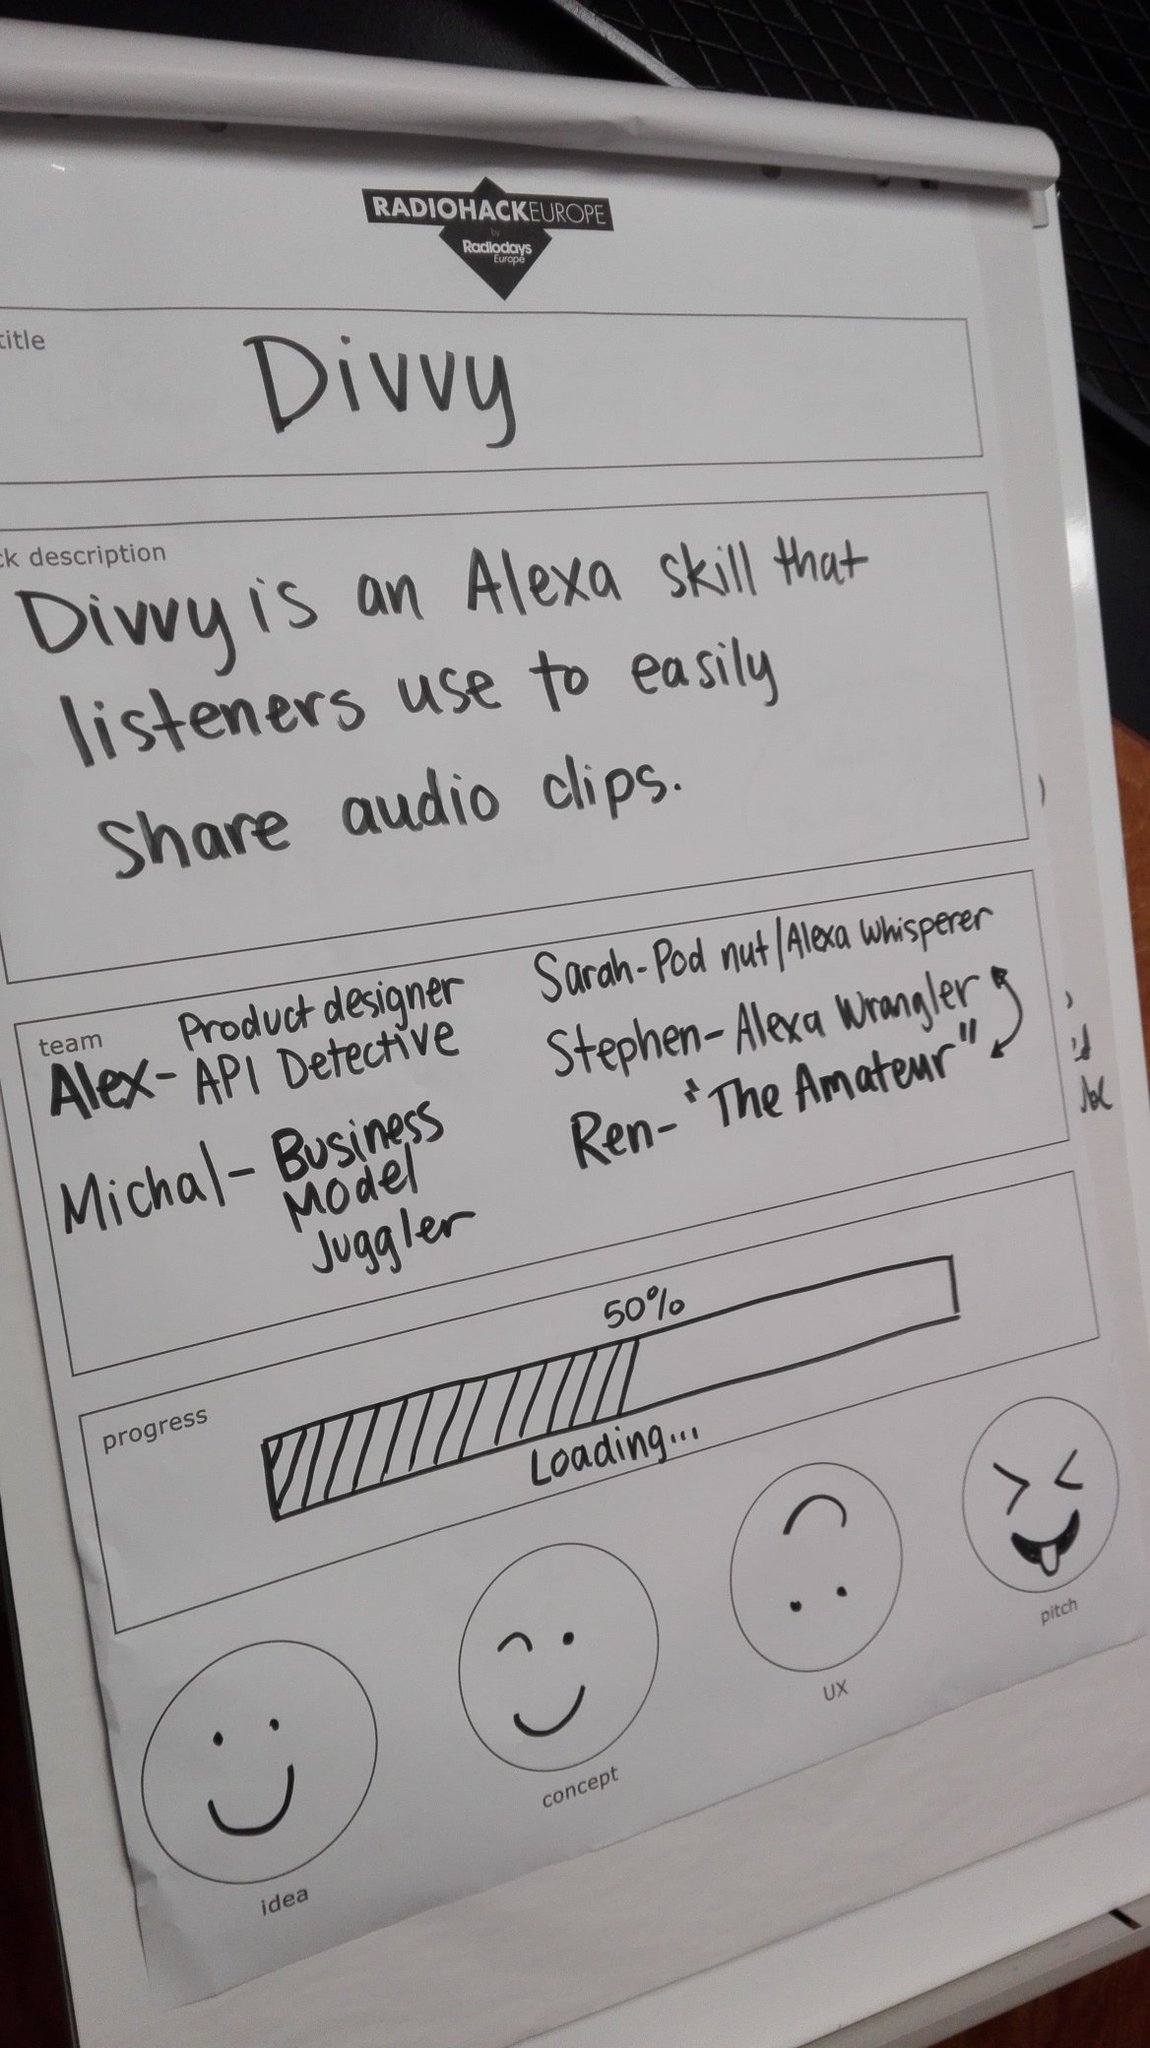 RADIOHACKEUROPE
by
Radiodays
Europe
title
Divvy
ck description
Divvy is an Alexa skill that
listeners use to easily
share audio clips.
team
Product designer
Alex - API Detective
Michal - Business
Model
Juggler
Sarah - Pod nut / Alexa Whisperer
Stephen - Alexa Wrangler
Ren - "The Amateur"
progress
50%
Loading...
idea
concept
UX
pitch